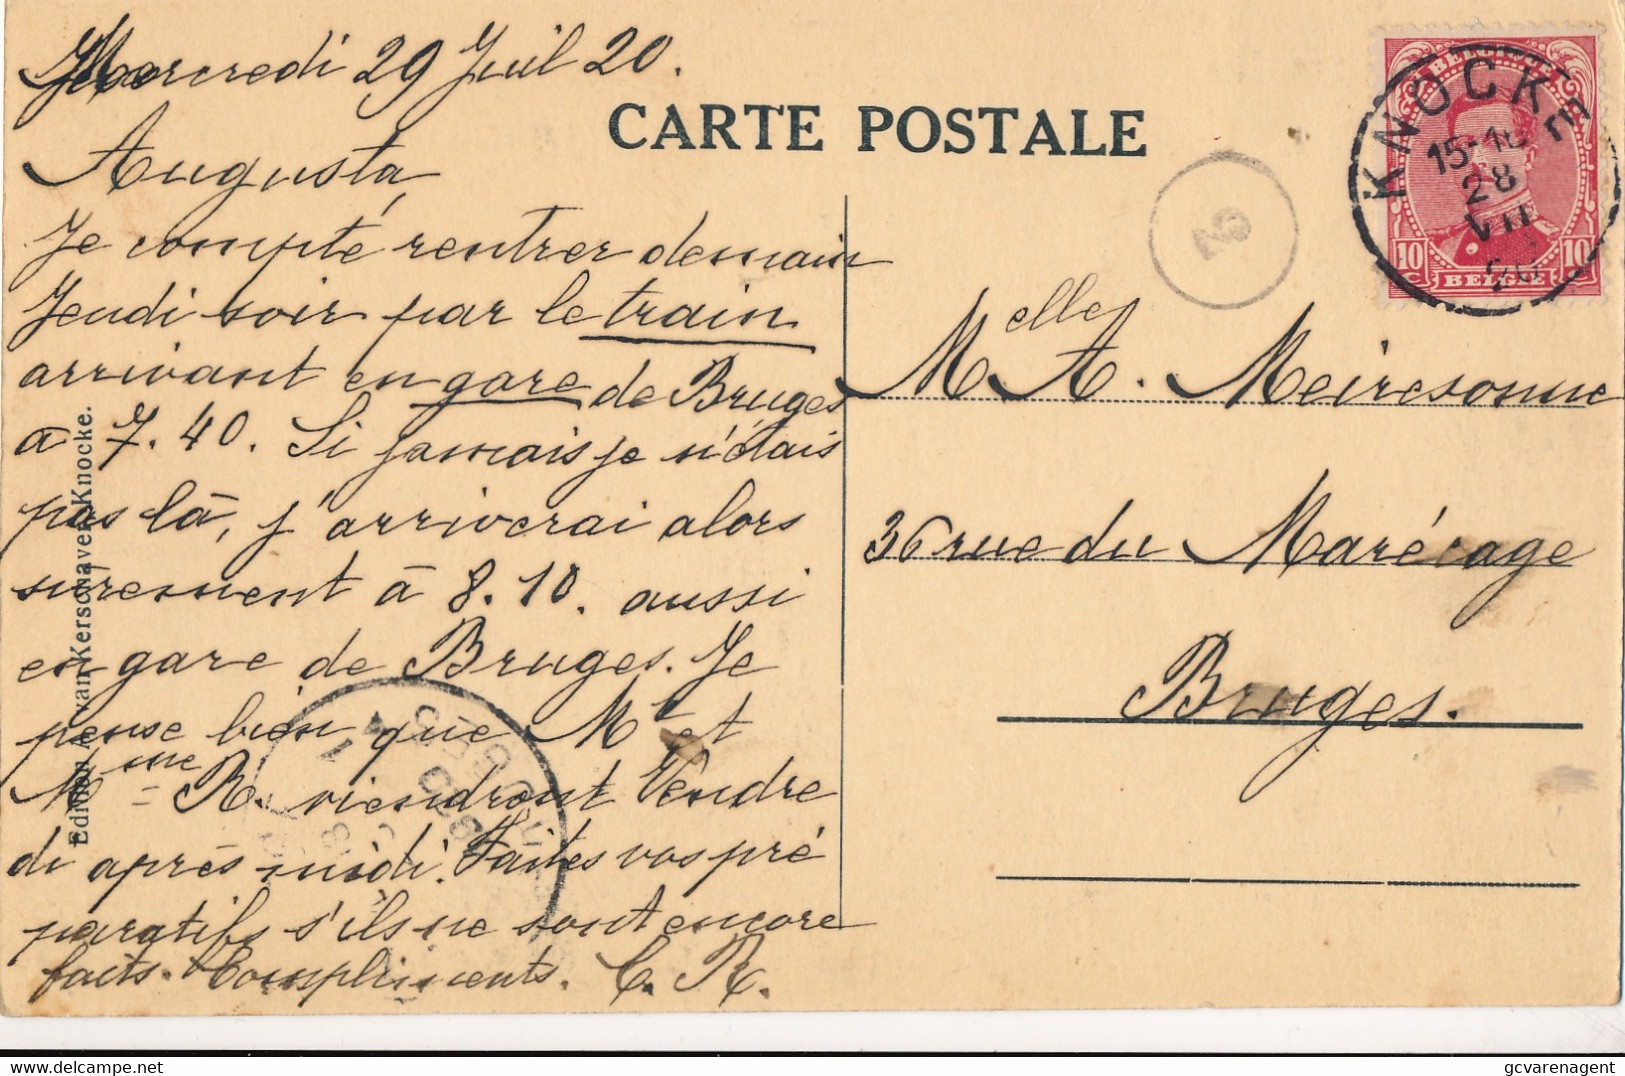 Mercredi 29 Juil 20.
CARTE POSTALE
Augusta,
Je compte rentrer demain
Jeudi soir par le train
arrivant en gare de Bruges
à 7.40. Si jamais je n'étais
pas là, j'arriverai alors
sûrement à 8.10. aussi
en gare de Bruges. Je
pense bien que Mr et
Mme R. viendront Vendre
di après midi. Faites vos pré
paratifs s'ils ne sont encore
faits. Compliments. C. R.
Edition van Kerschaver Knocke.
KNOCKE
15-16
28
VII
20
BELGIË
10 C 10 C
2
Melle A. Meiresonne
36 rue du Marécage
Bruges.
gcvarenagent